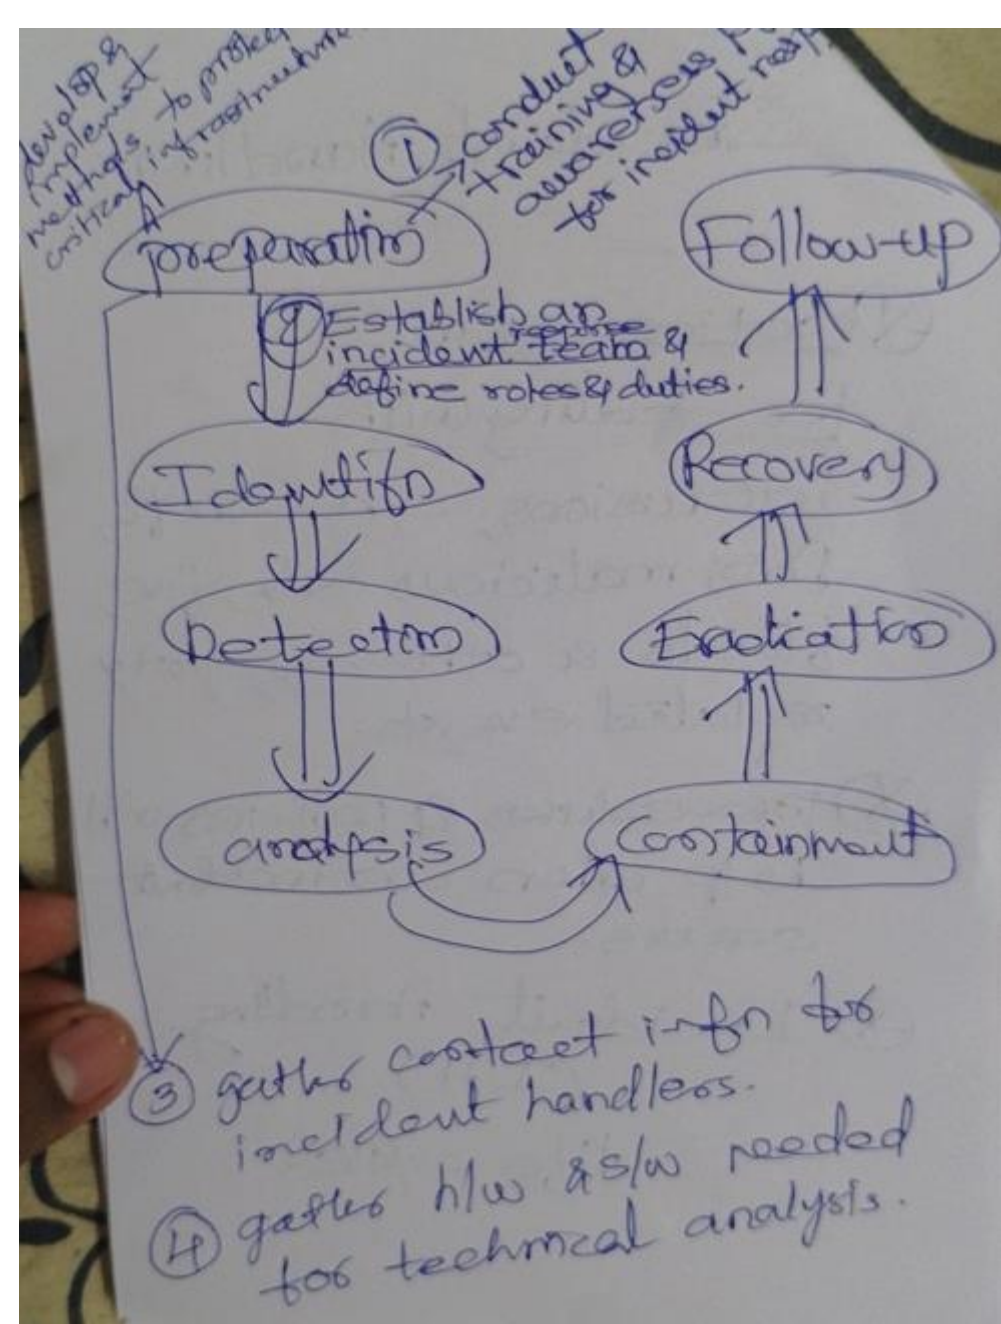 develop &
implement
methods to protect
critical infrastructure
① conduct
training &
awareness
for incident resp
preparation
② Establish an
incident response team &
define roles & duties.
Identifn
Detection
analysis
Containment
Eradication
Recovery
Follow-up
③ gather contact infn for
incident handlers.
④ gather h/w & s/w needed
for technical analysis.